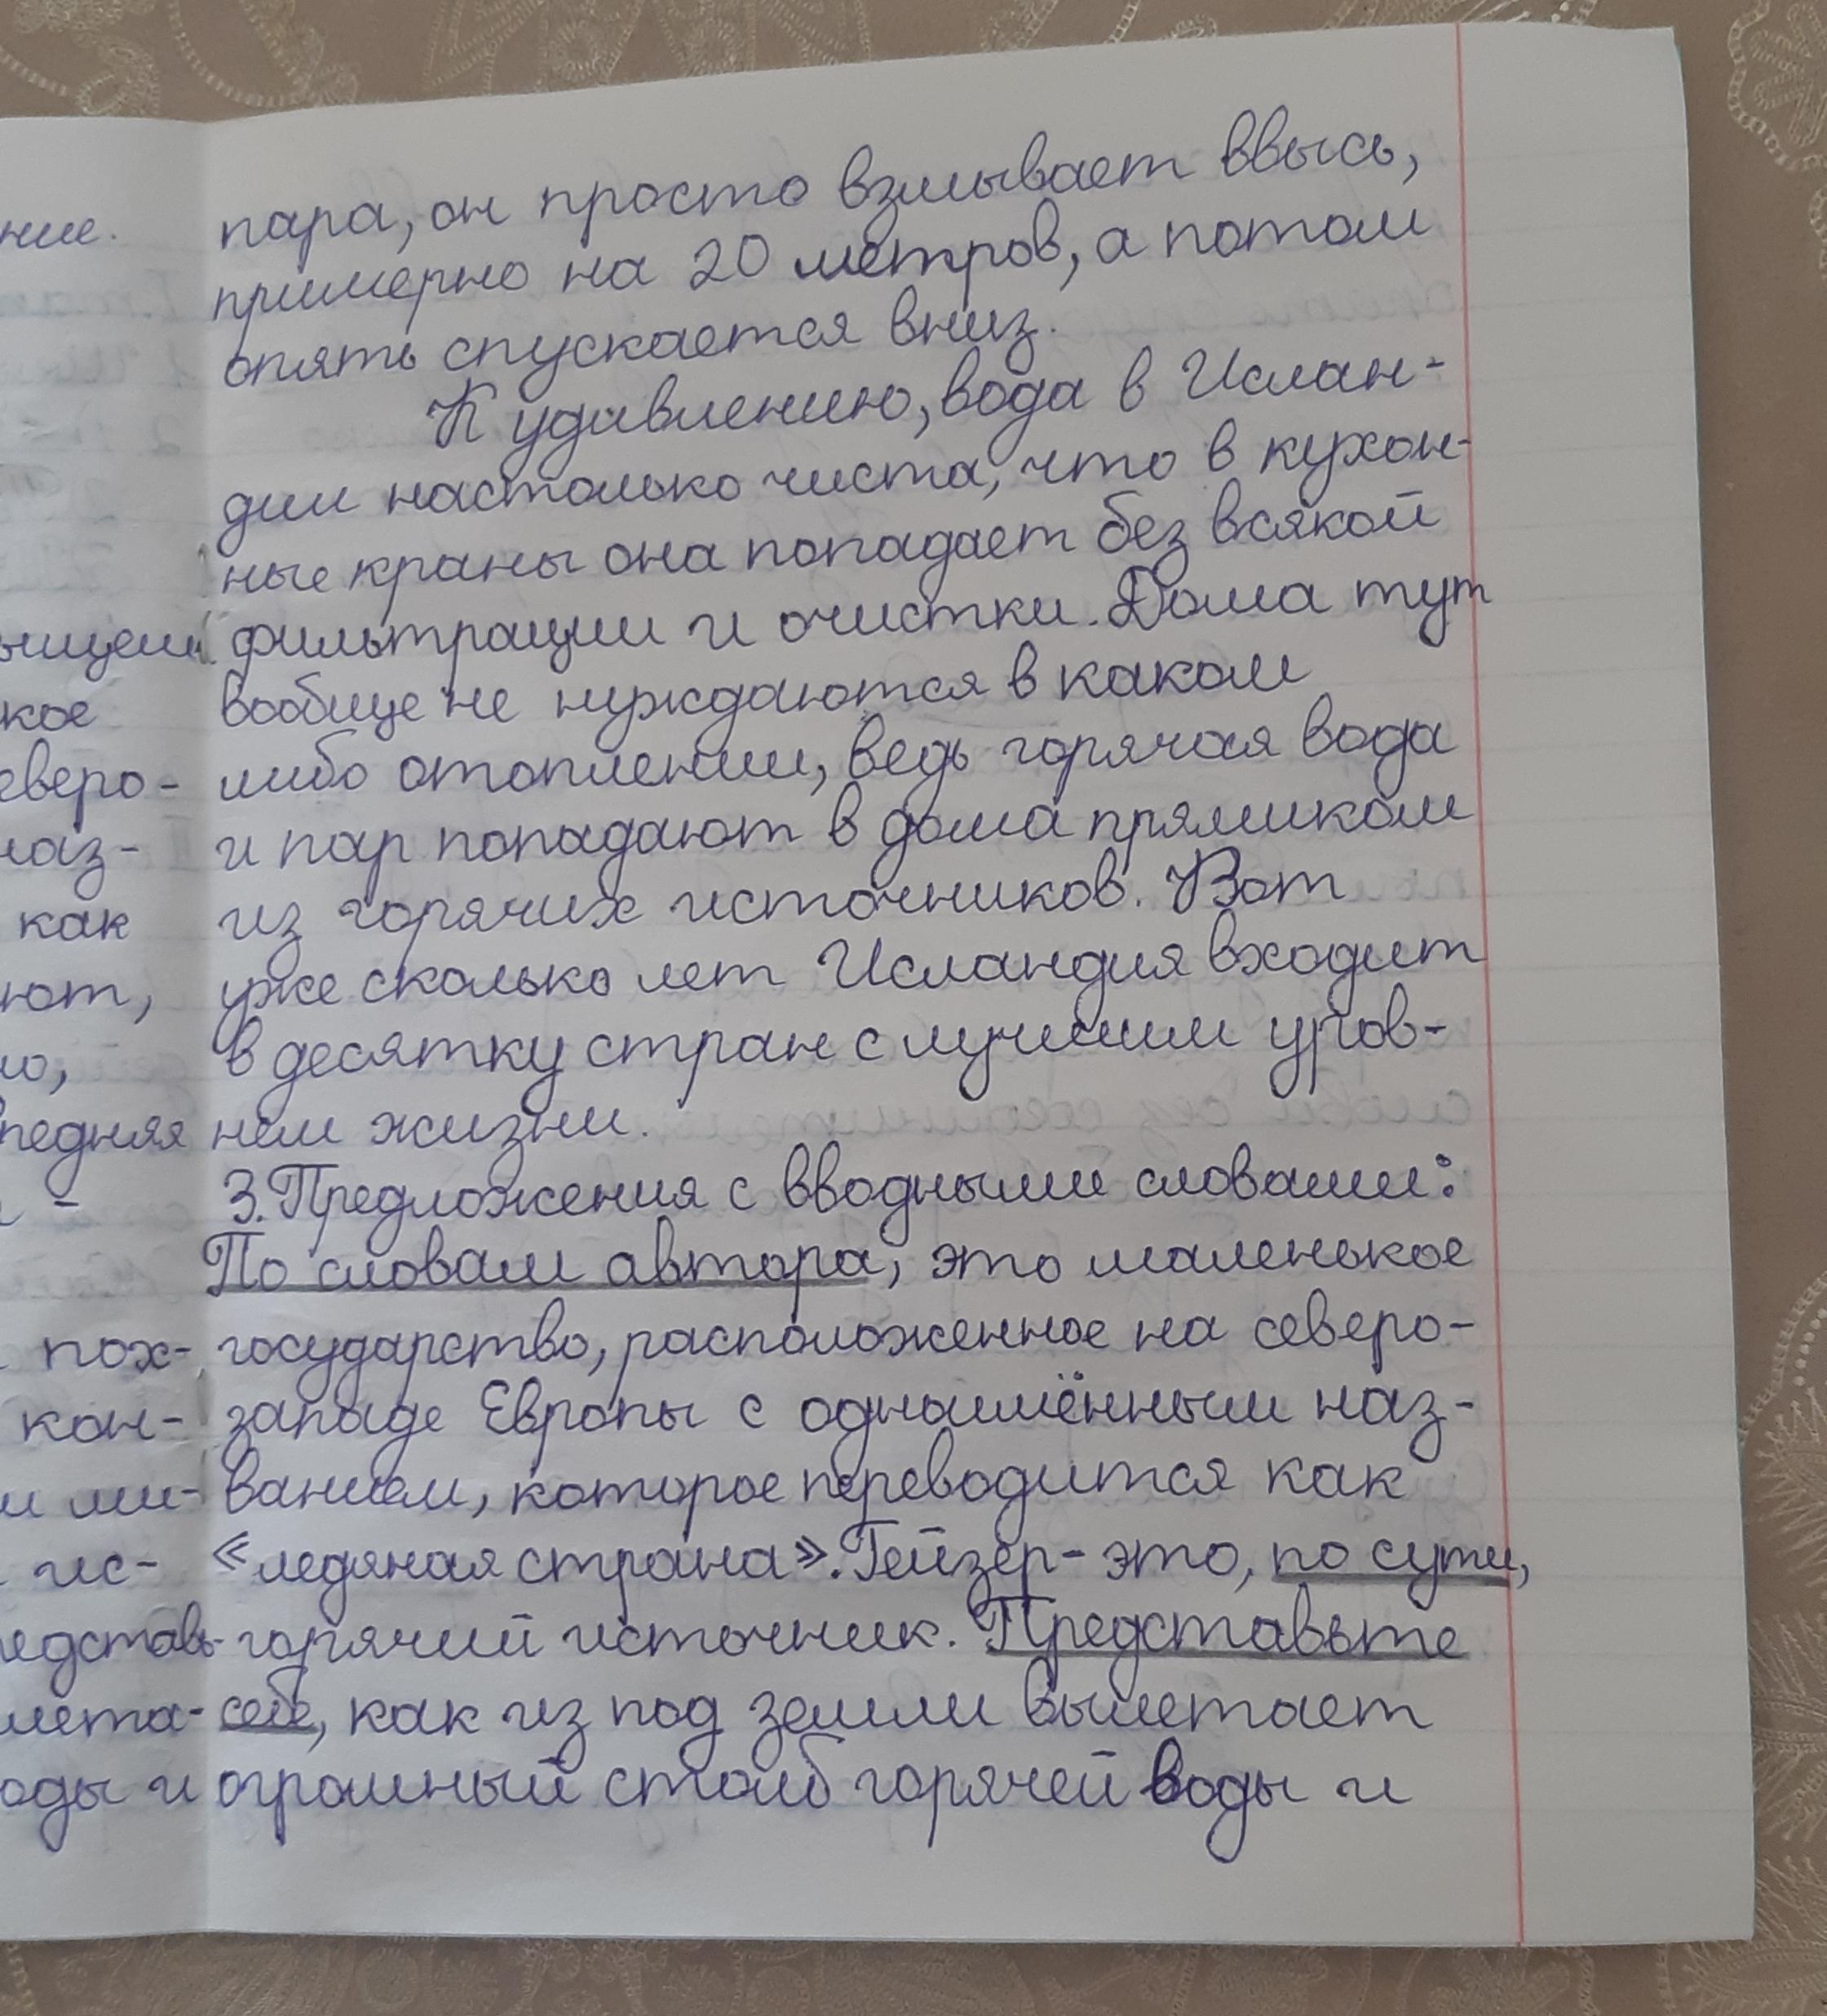 ние.
кое
северо-
наз-
как
ют,
но,
пох-
кон-
и ми-
ис-
представь-
лета-
оды и
пара, он просто взмывает ввысь,
примерно на 20 метров, а потом
опять спускается вниз.
К удивлению, вода в Ислан-
дии настолько чиста, что в кухон-
ные краны она попадает без всякой
фильтрации и очистки. Дома тут
вообще не нуждаются в каком
либо отоплении, ведь горячая вода
и пар попадают в дома прямиком
из горячих источников. Вот
уже сколько лет Исландия входит
в десятку стран с лучшим уров-
нем жизни.
3. Предложения с вводными словами:
По словам автора, это маленькое
государство, расположенное на северо-
западе Европы с одноимённым наз-
ванием, которое переводится как
«ледяная страна». Гейзер - это, по сути,
горячий источник. Представьте
себе, как из под земли вылетает
огромный столб горячей воды и